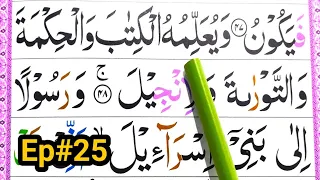 فَيَكُوْنُ ﴿۴۷﴾ وَيُعَلِّمُهُ الْكِتٰبَ وَالْحِكْمَةَ
وَالتَّوْرٰىةَ وَالْاِنْجِيْلَ ﴿۴۸﴾ ج وَرَسُوْلًا
اِلٰى بَنِىْۤ اِسْرَآءِيْلَ
Ep#25